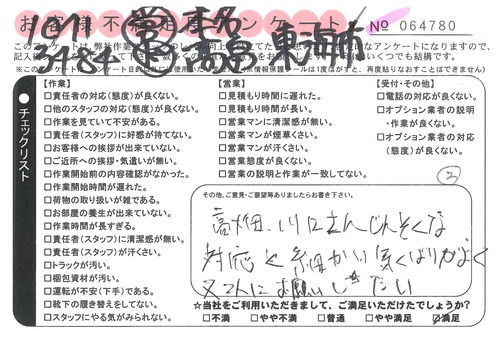 お客様不満足度アンケート
№ 064780
東海市
チェックリスト
【作業】
□責任者の対応(態度)が良くない。
□他のスタッフの対応(態度)が良くない。
□作業を見ていて不安がある。
□責任者(スタッフ)に好感が持てない。
□お客様への挨拶が出来ていない。
□ご近所への挨拶・気遣いが無い。
□作業開始前の内容確認がなかった。
□作業開始時間が遅れた。
□荷物の取り扱いが雑である。
□お部屋の養生が出来ていない。
□作業時間が長すぎる。
□責任者(スタッフ)に清潔感が無い。
□責任者(スタッフ)が汗くさい。
□トラックが汚い。
□梱包資材が汚い。
□運転が不安(下手)である。
□靴下の履き替えをしてない。
□スタッフにやる気がみられない。
【営業】
□見積もり時間に遅れた。
□見積もり時間が長い。
□営業マンに清潔感が無い。
□営業マンが煙草くさい。
□営業マンが汗くさい。
□営業態度が良くない。
□営業の説明と作業が一致してない。
【受付・その他】
□電話の対応が良くない。
□オプション業者の説明
・作業が良くない。
□オプション業者の対応
(態度)が良くない。
②
その他、ご意見・ご要望等ありましたらお書き下さい。
高畑、川口さんじんそくな
対応と細かい気くばりがよく
又コんにお願いしたい
☆当社をご利用いただきまして、ご満足いただけたでしょうか?
□不満 □やや不満 □普通 □やや満足 □満足